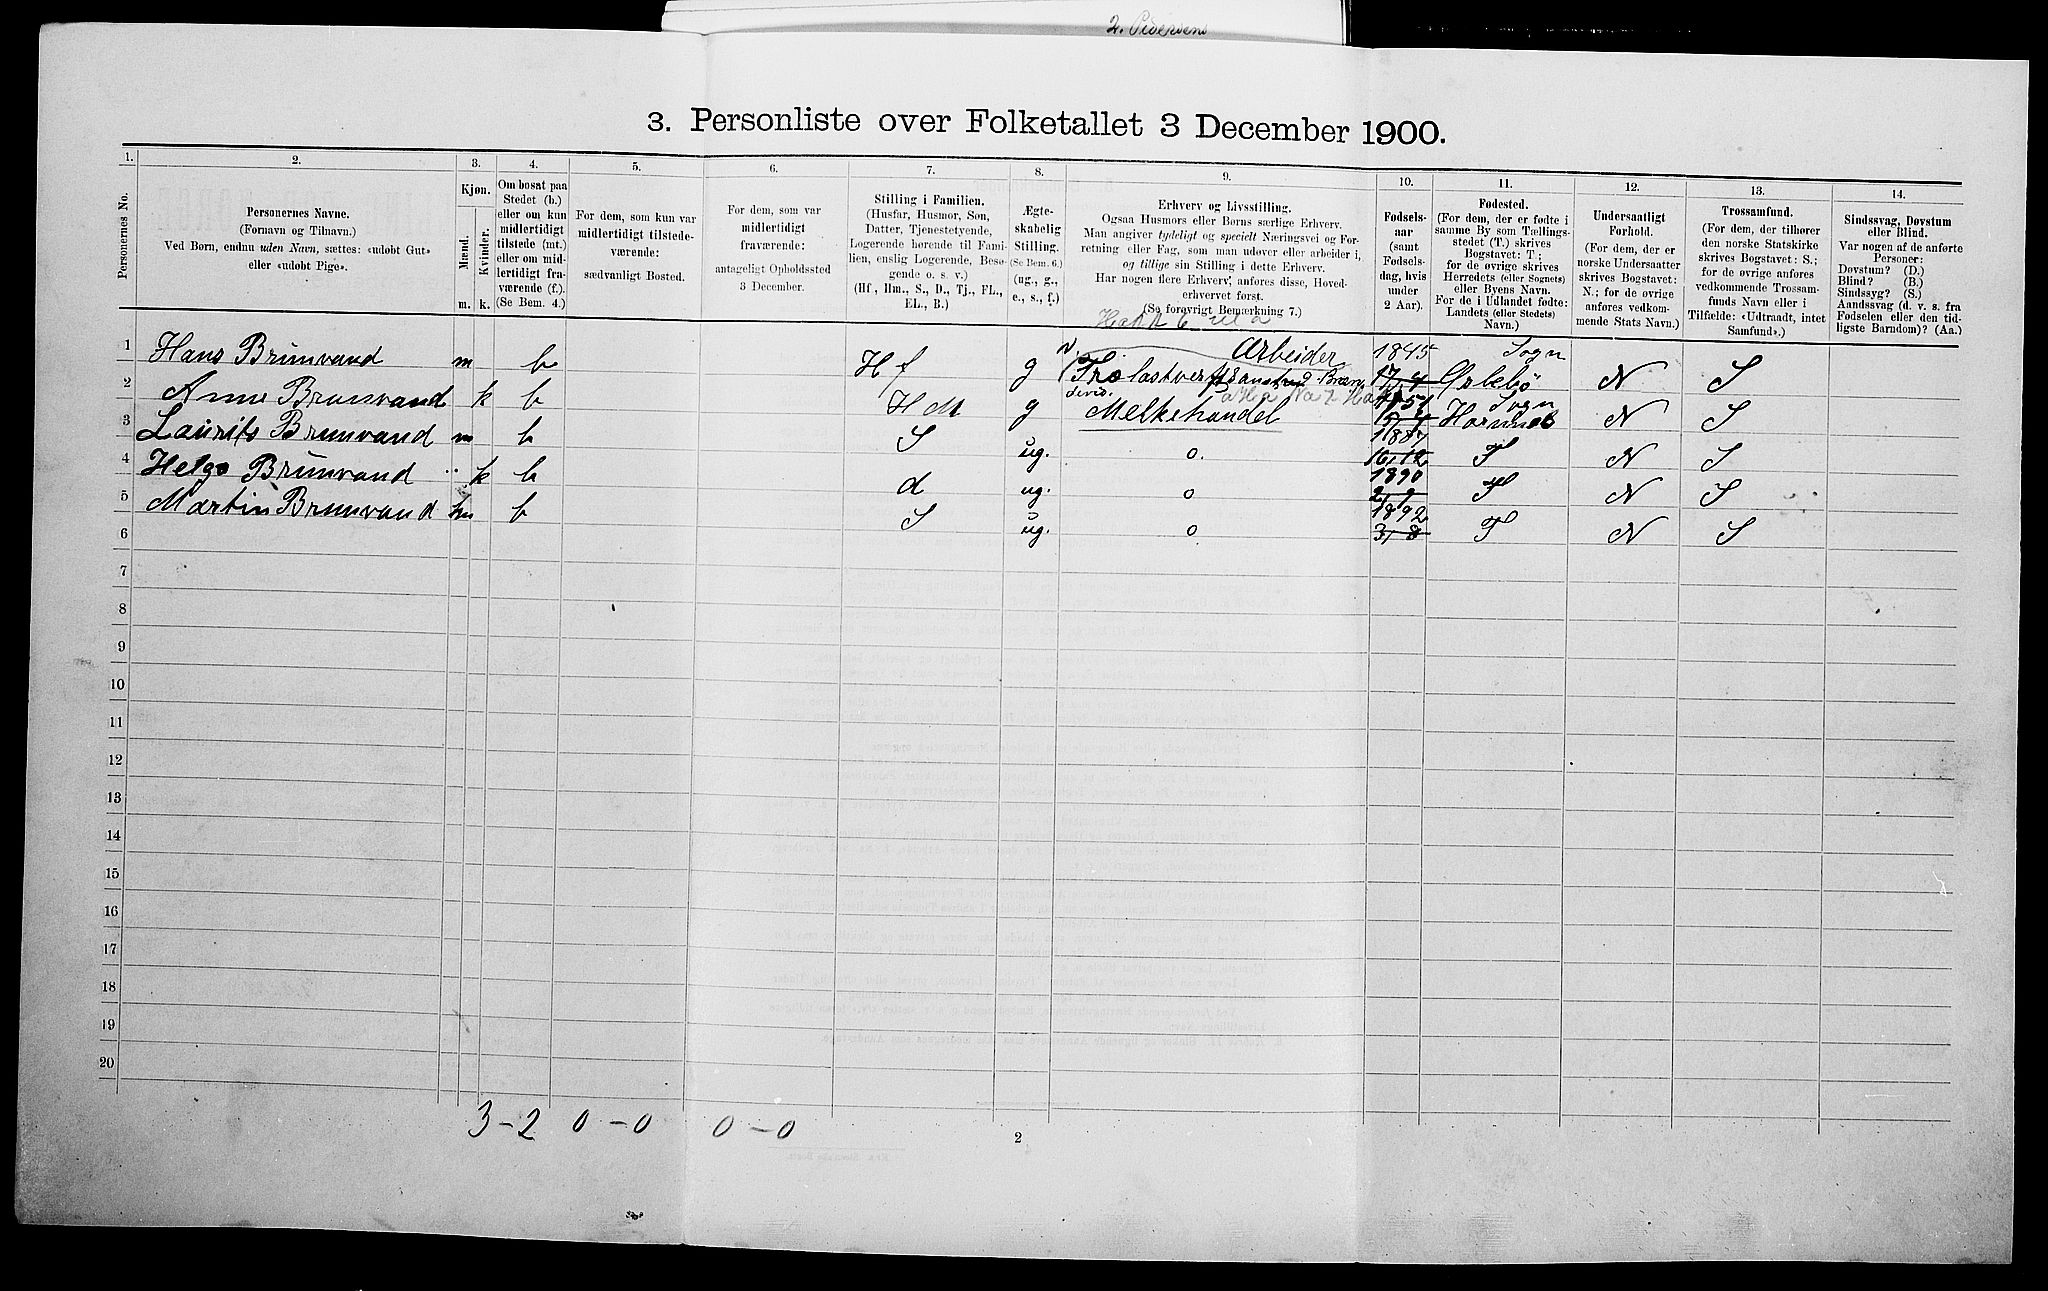 2. Pedersens
3. Personliste over Folketallet 3 December 1900.
1. 2. 3. 4. 5. 6. 7. 8. 9. 10. 11. 12. 13. 14.
Personernes No.
Personernes Navne.
(Fornavn og Tilnavn.)
Ved Børn, endnu uden Navn, sættes: «udøbt Gut»
eller «udøbt Pige».
Kjøn.
Mænd. Kvinder.
m. k.
Om bosat paa
Stedet (b.)
eller om kun
midlertidigt
tilstede (mt.)
eller om mid-
lertidigt fra-
værende (f.).
(Se Bem. 4.)
For dem, som kun var
midlertidigt tilstede-
værende:
sædvanligt Bosted.
For dem, som var
midlertidigt
fraværende:
antageligt Opholdssted
3 December.
Stilling i Familien.
(Husfar, Husmor, Søn,
Datter, Tjenestetyende,
Logerende hørende til Fami-
lien, enslig Logerende, Besø-
gende o. s. v.)
(Hf, Hm., S., D., Tj., FL.,
EL., B.)
Ægte-
skabelig
Stilling.
(Se Bem. 6.)
(ug., g.,
e., s., f.)
Erhverv og Livsstilling.
Ogsaa Husmors eller Børns særlige Erhverv.
Man angiver tydeligt og specielt Næringsvei og For-
retning eller Fag, som man udøver eller arbeider i,
og tillige sin Stilling i dette Erhverv.
Har nogen flere Erhverv, anføres disse, Hoved-
erhvervet først.
(Se forøvrigt Bemærkning 7.)
Fødsels-
aar
(samt
Fødsels-
dag, hvis
under
2 Aar).
Fødested.
(For dem, der er fødte i
samme By som Tællings-
stedet (T.) skrives
Bogstavet: T.;
for de øvrige skrives
Herredets (eller Sognets)
eller Byens Navn.
For de i Udlandet fødte:
Landets (eller Stedets)
Navn.)
Undersaatligt
Forhold.
(For dem, der er
norske Undersaatter
skrives Bogstavet:
N.; for de øvrige
anføres vedkom-
mende Stats Navn.)
Trossamfund.
(For dem, der tilhører
den norske Statskirke
skrives Bogstavet: S.;
for de øvrige anføres
vedkommende Trossam-
funds Navn eller i
Tilfælde: «Udtraadt, intet
Samfund».)
Sindssvag, Døvstum
eller Blind.
Var nogen af de anførte
Personer:
Døvstum? (D.)
Blind? (B.)
Sindssyg? (S.)
Aandssvag (d. v. s. fra
Fødselen eller den tid-
ligste Barndom)? (Aa.)
1 Hans Brunvand m b Hf g Arbeider 1845 17/4 Sogn N S
2 Anne Brunvand k b HM g Melkehandel 5/4 Sogn N S
3 Laurits Brunvand m b S ug. o. 1887 16/12 T N S
4 Helga Brunvand k b d ug. o 1890 2/9 T N S
5 Martin Brunvand m b S ug. o 1892 3/8 T N S
6
7
8
9
10
11
12
13
14
15
16
17
18
19
20
3 - 2 0 - 0 0 - 0
2